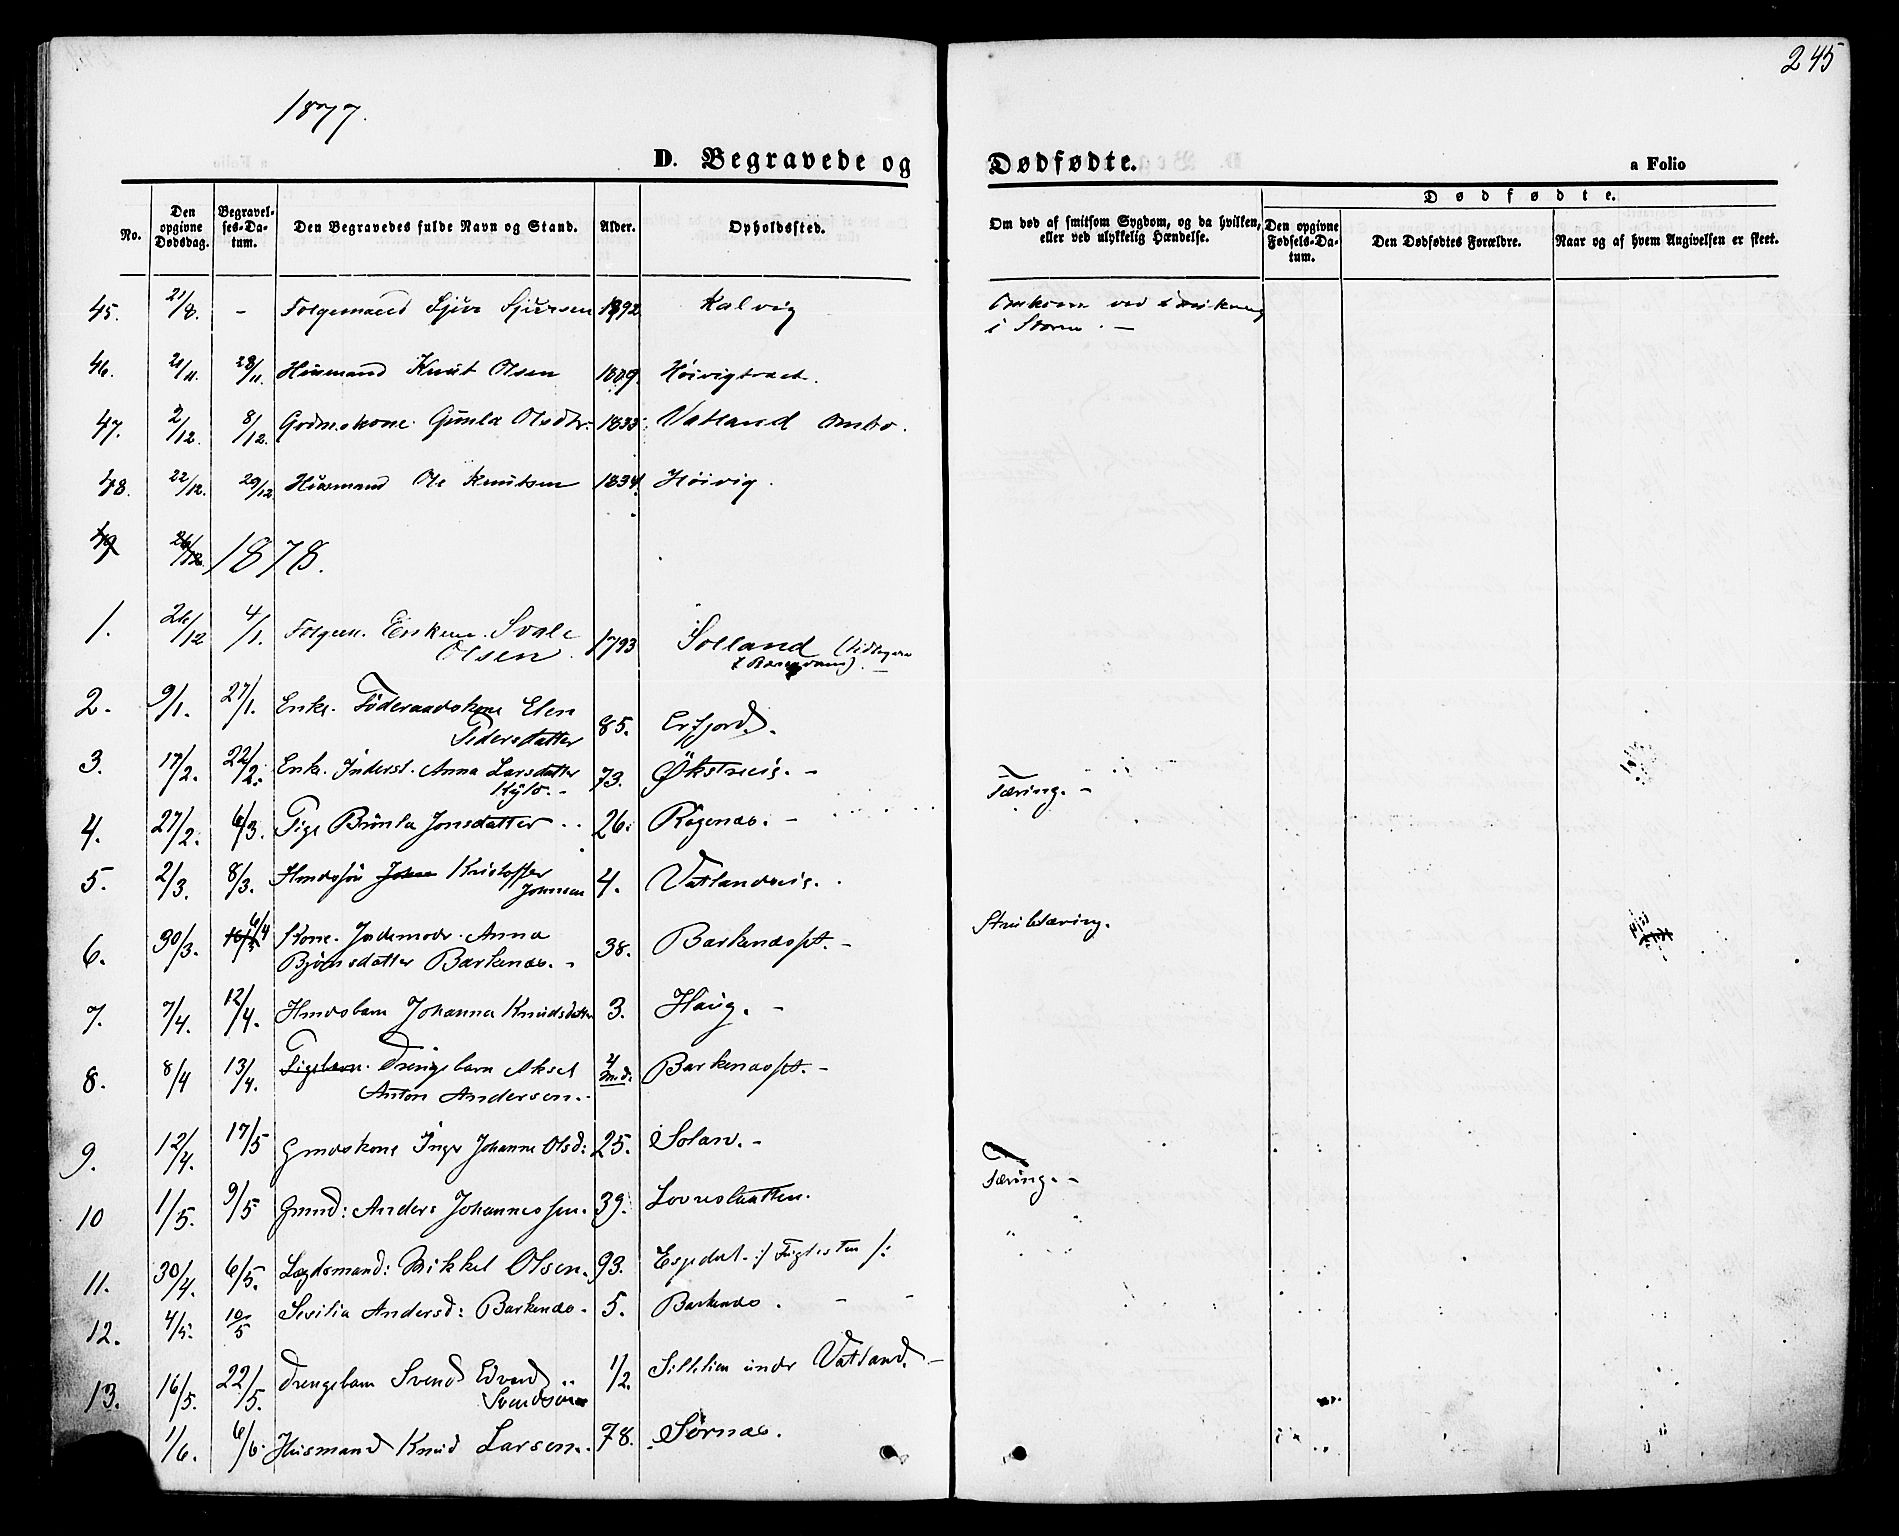 245
1877.
D. Begravede og Dødfødte.
a Folio
No.
Den opgivne Dødsdag.
Begravelses-Datum.
Den Begravedes fulde Navn og Stand.
Alder.
Opholdssted.
Om død af smitsom Sygdom, og da hvilken, eller ved ulykkelig Hændelse.
Dødfødte.
Den opgivne Fødsels-Datum.
Den Dødfødtes Forældre.
Naar og af hvem Angivelsen er skeet.
45. 21/8. - Folgemand Sjur Sjursen 1892 Kalvig Omkom ved
i Storm. -
46. 21/11. 28/11. Husmand Knut Olsen 1809. Høivigtræet.
47. 2/12. 8/12. Gdmskone. Gunla Olsdtr. 1833 Vatland Ombo.
48. 22/12. 29/12 Husmand Ole Knutsen 1834. Høivig.
49 26/12.
1878.
1. 26/12 4/1. Folgem. Enkem. Svale Olsen. 1793 Solland (tidligere
2. 9/1. 27/1. Enke. Føderaadskone Elen Pedersdatter 85. Erfjord.
3. 17/2. 22/2. Enke. Inderst. Anna Larsdatter 73. Økstrveig. - Tæring. -
4. 27/2. 6/3. Pige Brunla Jonsdatter 26. Røgenæs. -
5. 2/3. 8/3. Hmdssøn John Kristoffer Johnsen 4. Vatlandsveig.
6. 30/3. 6/4 Kone. Jordemodr. Anna Bjørnsdatter Barkenæs. - 38. Barkenæspt. - Strubetæring.
7. 7/4. 12/4. Hmdsbarn Johanna Knudsdatter 3. Haug. -
8. 8/4 13/4. Pigebarn. Drengebarn Aksel Anton Andersen. - 4 Md. Barkenæspt. -
9. 12/4. 17/5 Gmdskone Inger Johanne Olsd: 25. Solan. - Tæring. -
10 1/5. 9/5 Gmd: Anders Johannessen. 39. Lovreslaatten. "
11. 30/4. 6/5. Lægdsmand: Mikkel Olsen. 93. Espedal - :/ Fuglesten /:
12. 4/5. 10/5 Sesilia Andersd: Barkenæs. 5. Barkenæs. - -
13. 16/5. 22/5. Drengebarn Svend Edvard Svendsen 1/2. Sillelien under Vatland. -
1/6. 6/6. Husmand Knud Larsen. 78. Sørnæs.